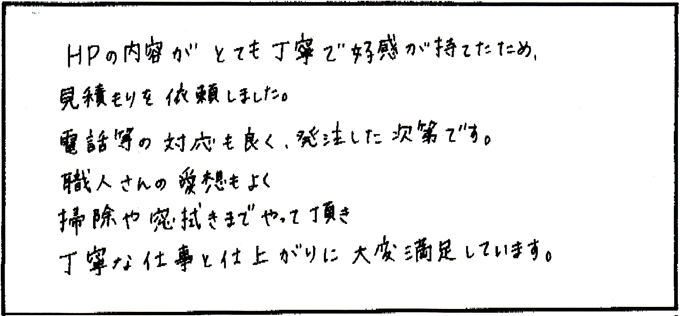 HPの内容がとても丁寧で好感が持てたため、
見積もりを依頼しました。
電話等の対応も良く、発注した次第です。
職人さんの愛想もよく
掃除や窓拭きまでやって頂き
丁寧な仕事と仕上がりに大変満足しています。